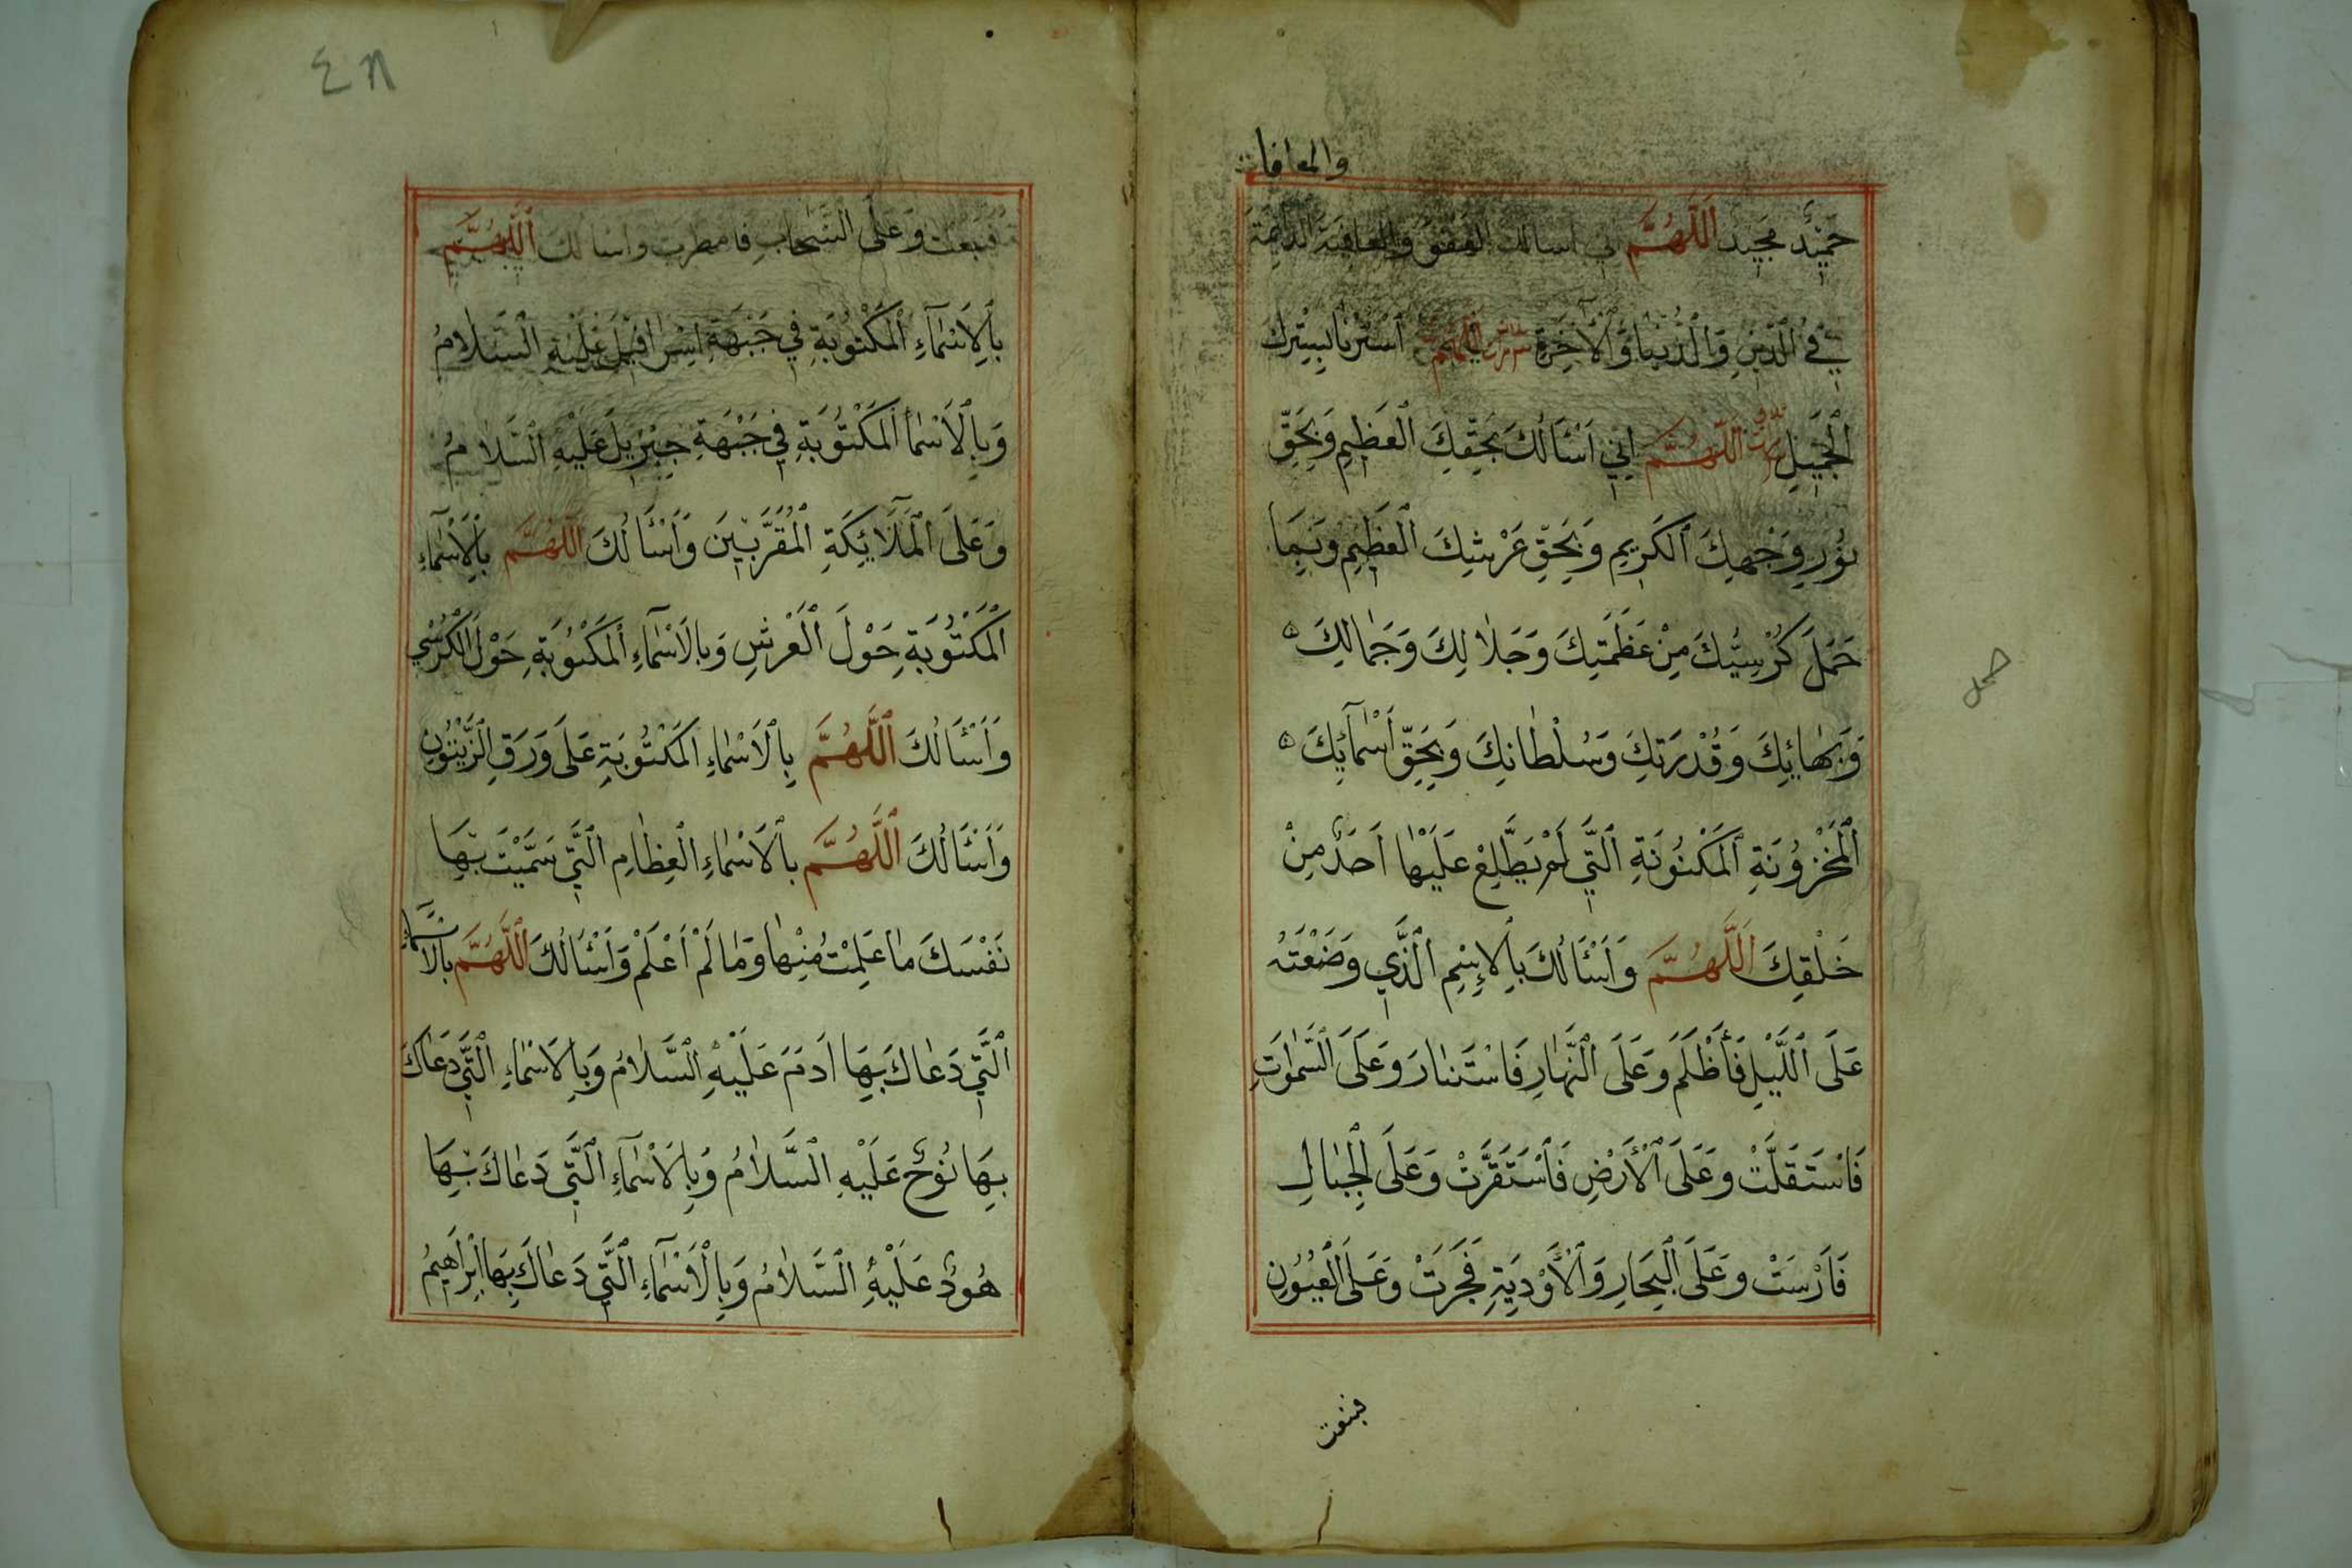 والمعافات
حَمِيْدٌ مَجِيْدٌ اَللّٰهُمَّ اِنِّي اسألك العفو والعافية الدائمة
فِي الدِّيْنِ وَالدُّنْيَا وَالْآخِرَةِ اسْتُرْنَا بِسِتْرِكَ
الْجَمِيْلِ اَللّٰهُمَّ اِنِّي اَسْئَالُكَ بِحَقِّكَ الْعَظِيْمِ وَبِحَقِّ
نُوْرِ وَجْهِكَ الْكَرِيْمِ وَبِحَقِّ عَرْشِكَ الْعَظِيْمِ وَبِمَا
حَمَلَ كُرْسِيُّكَ مِنْ عَظَمَتِكَ وَجَلَالِكَ وَجَمَالِكَ
وَبَهَائِكَ وَقُدْرَتِكَ وَسُلْطَانِكَ وَبِحَقِّ اَسْمَآئِكَ
الْمَخْزُوْنَةِ الْمَكْنُوْنَةِ الَّتِي لَمْ يَطَّلِعْ عَلَيْهَا اَحَدٌ مِنْ
خَلْقِكَ اَللّٰهُمَّ وَاَسْئَالُكَ بِالْاِسْمِ الَّذِي وَضَعْتَهُ
عَلَى اللَّيْلِ فَأَظْلَمَ وَعَلَى النَّهَارِ فَاسْتَنَارَ وَعَلَى السَّمٰوَتِ
فَاسْتَقَلَّتْ وَعَلَى الْأَرْضِ فَاسْتَقَرَّتْ وَعَلَى الْجِبَالِ
فَاَرْسَتْ وَعَلَى الْبِحَارِ وَالْأَوْدِيَةِ فَجَرَتْ وَعَلَى الْعُيُوْنِ
فنبعت
٤٨
فنبعت وَعَلَى السَّحَابِ فَامطرت واسْالُكَ اَللّٰهُمَّ
بِالْاَسْمَآءِ الْمَكْتُوْبَةِ فِي جَبْهَةِ اِسْرَافِيْلَ عَلَيْهِ السَّلَامُ
وَبِالْاَسْمَاْ الْمَكْتُوْبَةِ فِي جَبْهَةِ جِبْرِيْلَ عَلَيْهِ السَّلَامُ
وَعَلَى الْمَلَآئِكَةِ الْمُقَرَّبِيْنَ وَاَسْئَالُكَ اَللّٰهُمَّ بِالْاَسْمَآءِ
الْمَكْتُوْبَةِ حَوْلَ الْعَرْشِ وَبِالْاَسْمَآءِ الْمَكْتُوْبَةِ حَوْلَ الْكُرْسِي
وَاَسْئَالُكَ اَللّٰهُمَّ بِالْاَسْمَاءِ الْمَكْتُوْبَةِ عَلَى وَرَقِ الزَّيْتُوْنِ
وَاَسْئَالُكَ اَللّٰهُمَّ بِالْاَسْمَاءِ الْعِظَامِ الَّتِي سَمَّيْتَ بِهَا
نَفْسَكَ مَا عَلِمْتُ مِنْهَا وَمَا لَمْ اَعْلَمْ وَاَسْئَالُكَ اَللّٰهُمَّ بِالْاَسْمَآءِ
الَّتِي دَعَاكَ بِهَا اٰدَمَ عَلَيْهِ السَّلَامُ وَبِالْاَسْمَاءِ الَّتِي دَعَاكَ
بِهَا نُوْحٌ عَلَيْهِ السَّلَامُ وَبِالْاَسْمَآءِ الَّتِي دَعَاكَ بِهَا
هُوْدٌ عَلَيْهِ السَّلَامُ وَبِالْاَسْمَآءِ الَّتِي دَعَاكَ بِهَا اِبْرَاهِيْمُ